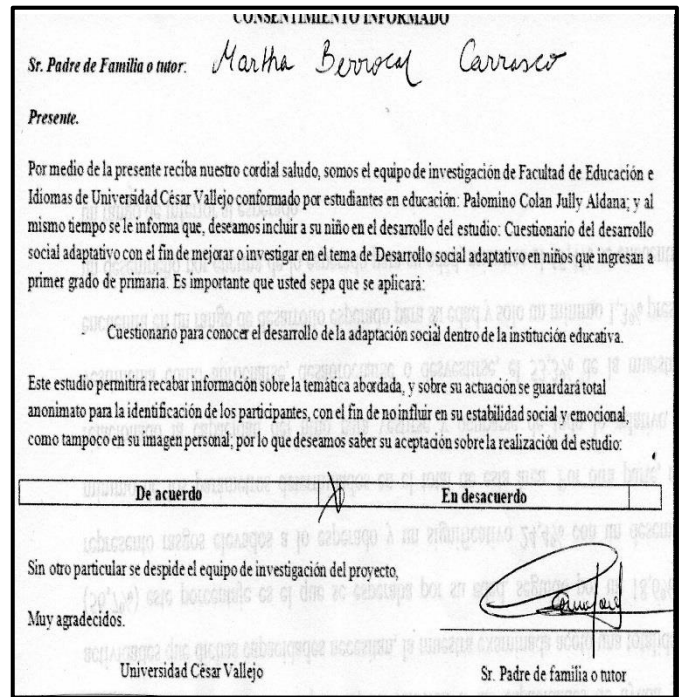 CONSENTIMIENTO INFORMADO
Sr. Padre de Familia o tutor: Martha Berrocal Carrasco
Presente.
Por medio de la presente reciba nuestro cordial saludo, somos el equipo de investigación de Facultad de Educación e
Idiomas de Universidad César Vallejo conformado por estudiantes en educación: Palomino Colan Jully Aldana; y al
mismo tiempo se le informa que, deseamos incluir a su niño en el desarrollo del estudio: Cuestionario del desarrollo
social adaptativo con el fin de mejorar o investigar en el tema de Desarrollo social adaptativo en niños que ingresan a
primer grado de primaria. Es importante que usted sepa que se aplicará:
- Cuestionario para conocer el desarrollo de la adaptación social dentro de la institución educativa.
Este estudio permitirá recabar información sobre la temática abordada, y sobre su actuación se guardará total
anonimato para la identificación de los participantes, con el fin de no influir en su estabilidad social y emocional,
como tampoco en su imagen personal; por lo que deseamos saber su aceptación sobre la realización del estudio:
De acuerdo X En desacuerdo
Sin otro particular se despide el equipo de investigación del proyecto,
Muy agradecidos.
Universidad César Vallejo Sr. Padre de familia o tutor